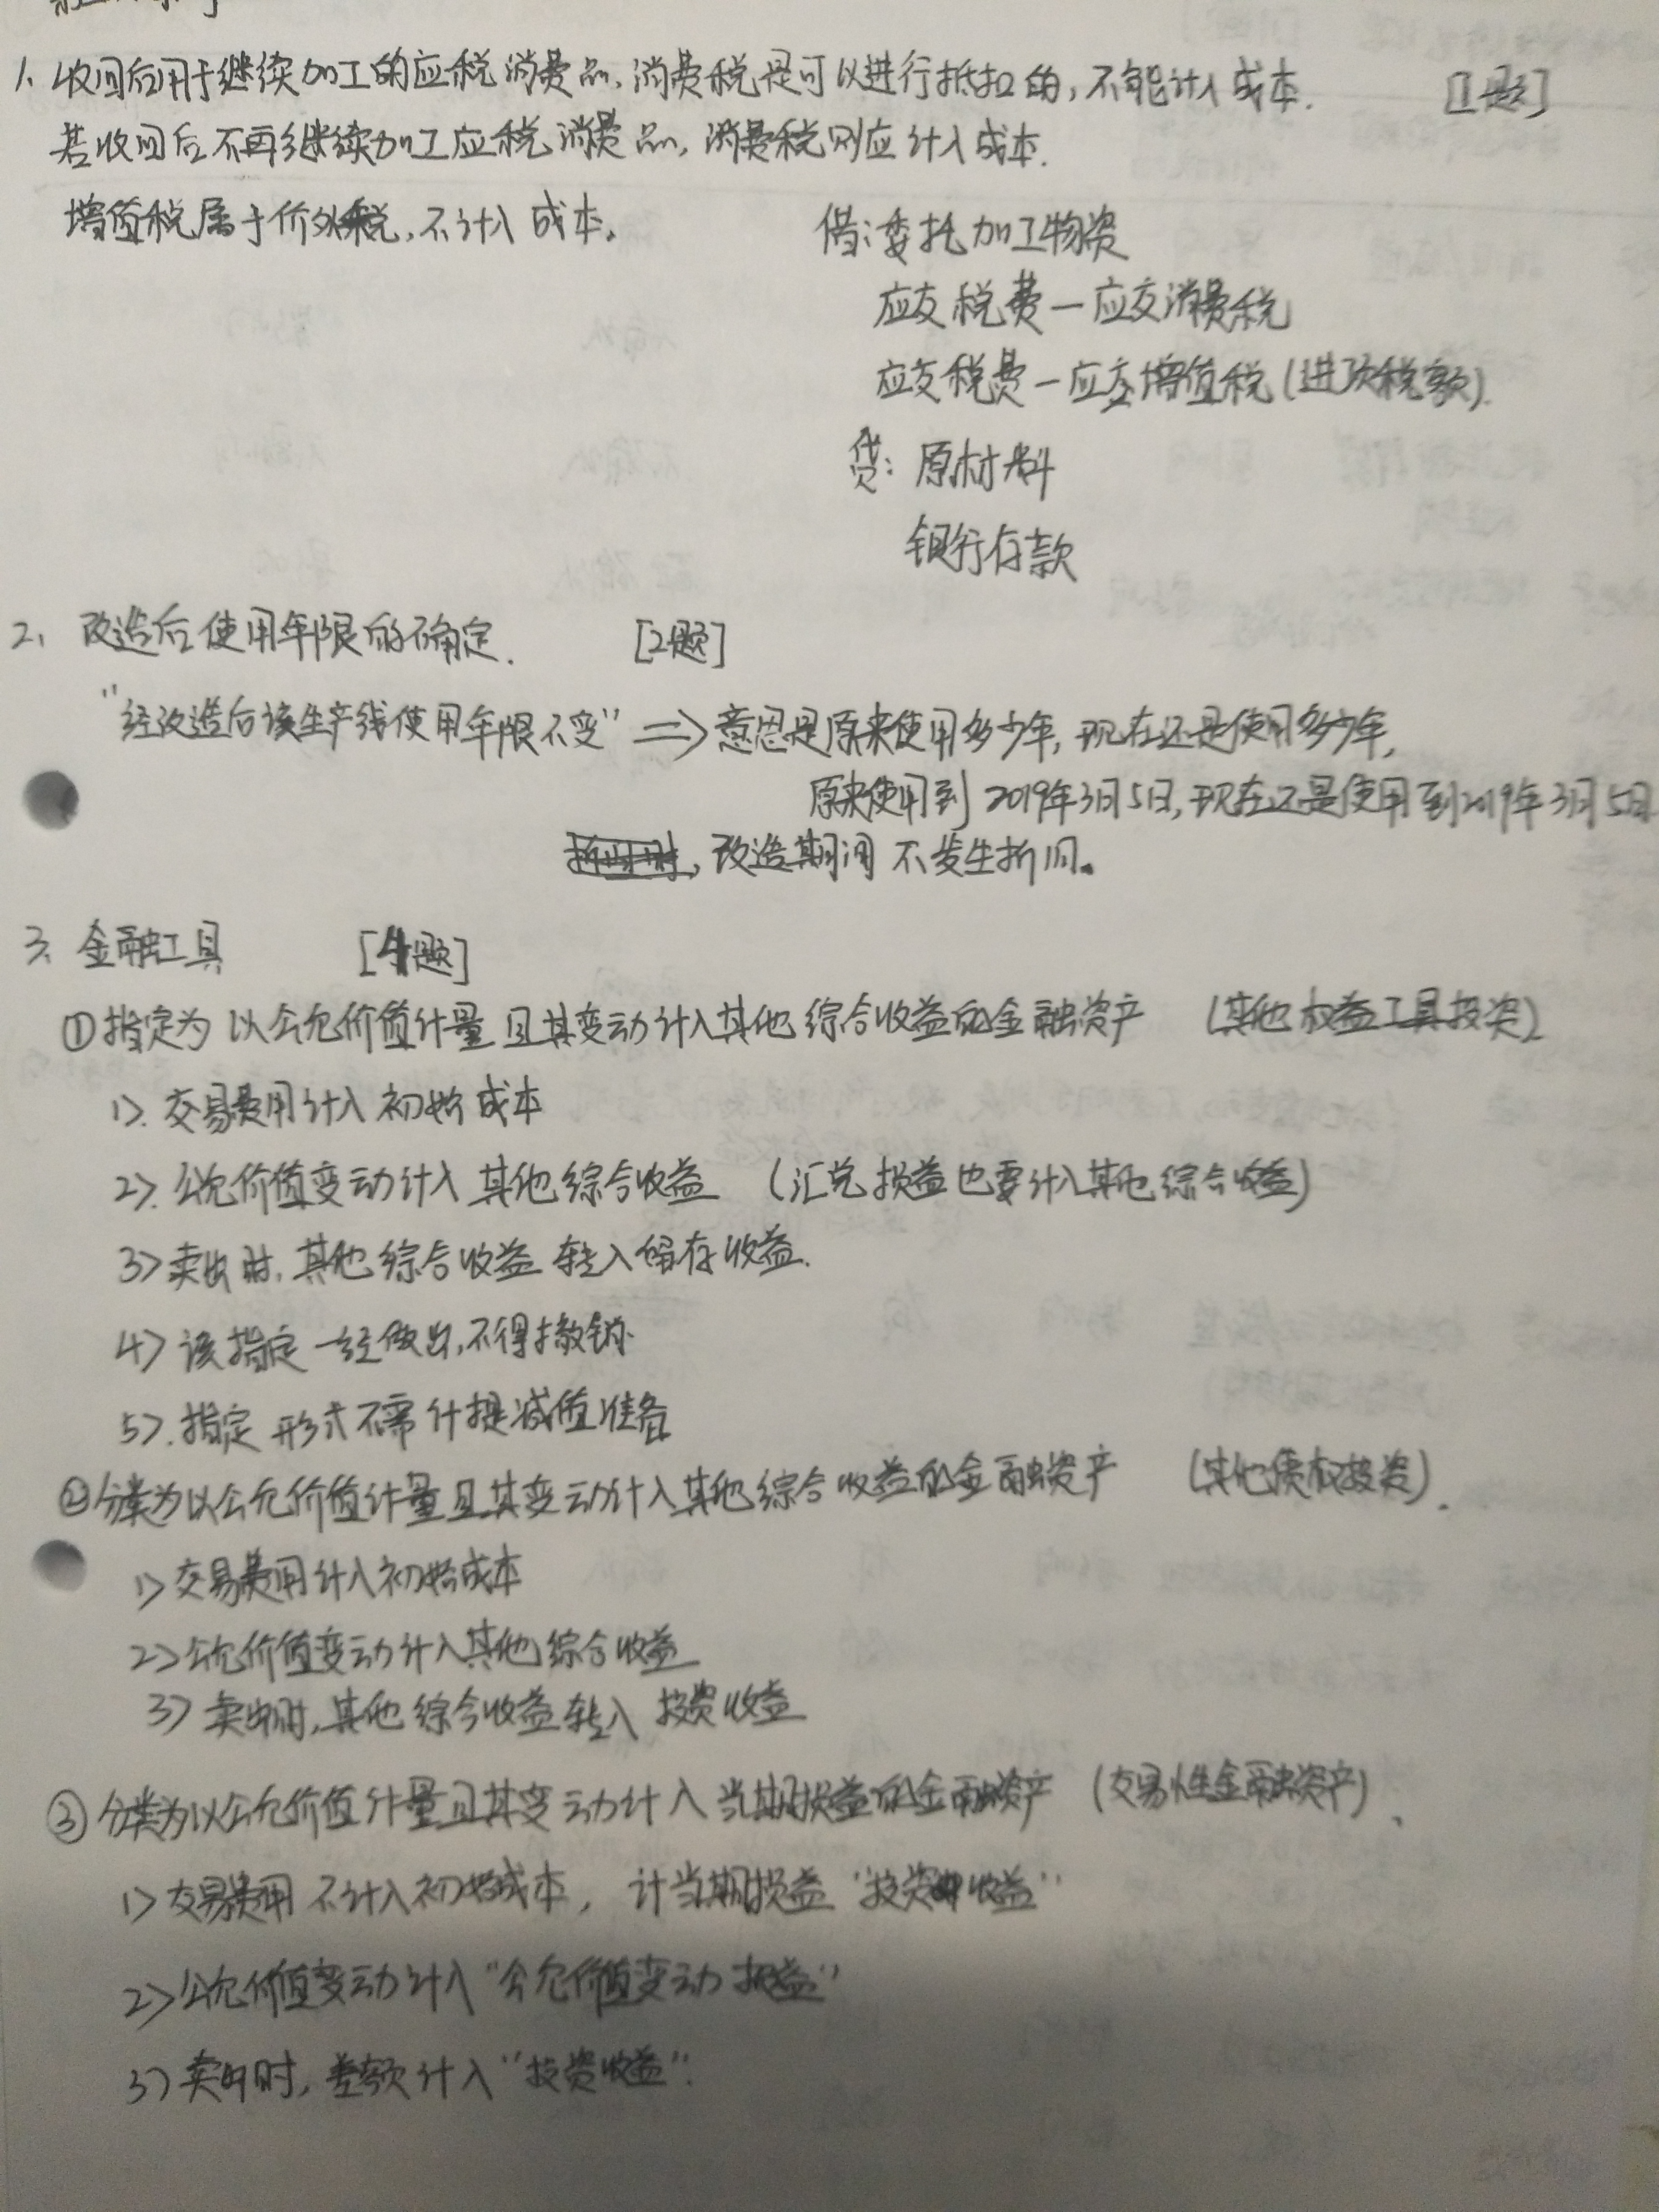 1. 收回后用于继续加工的应税消费品,消费税是可以进行抵扣的,不能计入成本. [1题]
若收回后不再继续加工应税消费品,消费税则应计入成本.
增值税属于价外税,不计入成本。
借:委托加工物资
应交税费—应交消费税
应交税费—应交增值税(进项税额).
贷:原材料
银行存款
2、改造后使用年限的确定. [2题]
"经改造后该生产线使用年限不变" => 意思是原来使用多少年,现在还是使用多少年,
原来使用到2019年3月5日,现在还是使用到2019年3月5日
,改造期间不发生折旧。
3、金融工具 [4题]
①指定为以公允价值计量且其变动计入其他综合收益的金融资产 (其他权益工具投资)
1>.交易费用计入初始成本
2>.公允价值变动计入其他综合收益 (汇兑损益也要计入其他综合收益)
3>卖出时,其他综合收益转入留存收益.
4>该指定一经做出,不得撤销.
5>.指定形式不需计提减值准备
②分类为以公允价值计量且其变动计入其他综合收益的金融资产 (其他债权投资).
1>交易费用计入初始成本
2>公允价值变动计入其他综合收益
3>卖出时,其他综合收益转入投资收益
③分类为以公允价值计量且其变动计入当期损益的金融资产 (交易性金融资产).
1>交易费用不计入初始成本,计当期损益"投资收益"
2>公允价值变动计入"公允价值变动损益"
3>卖出时,差额计入"投资收益".